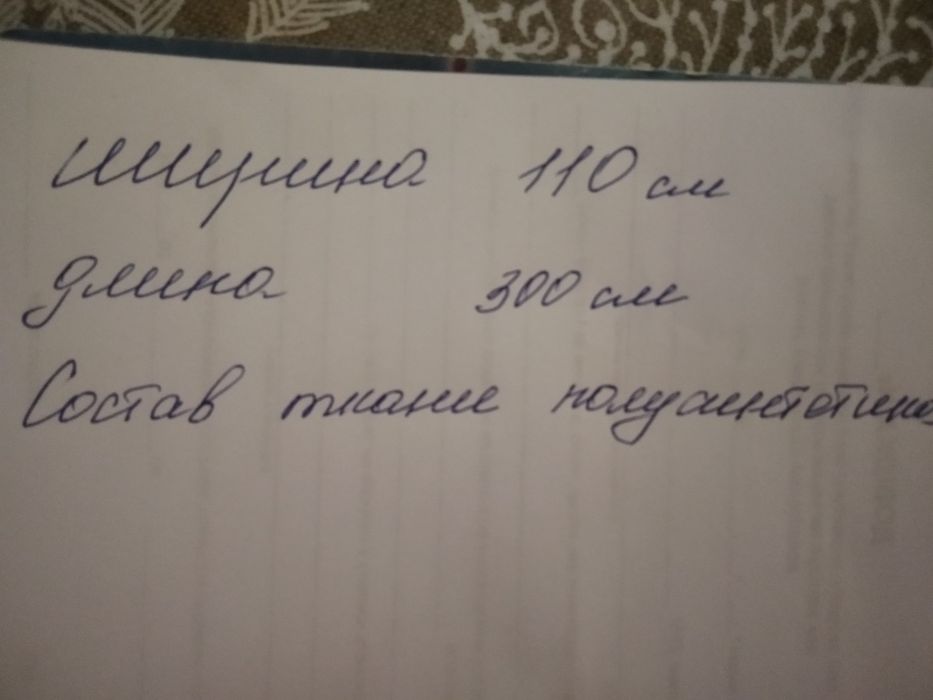 Ширина 110 см
длина 300 см
Состав ткани полусинтотика